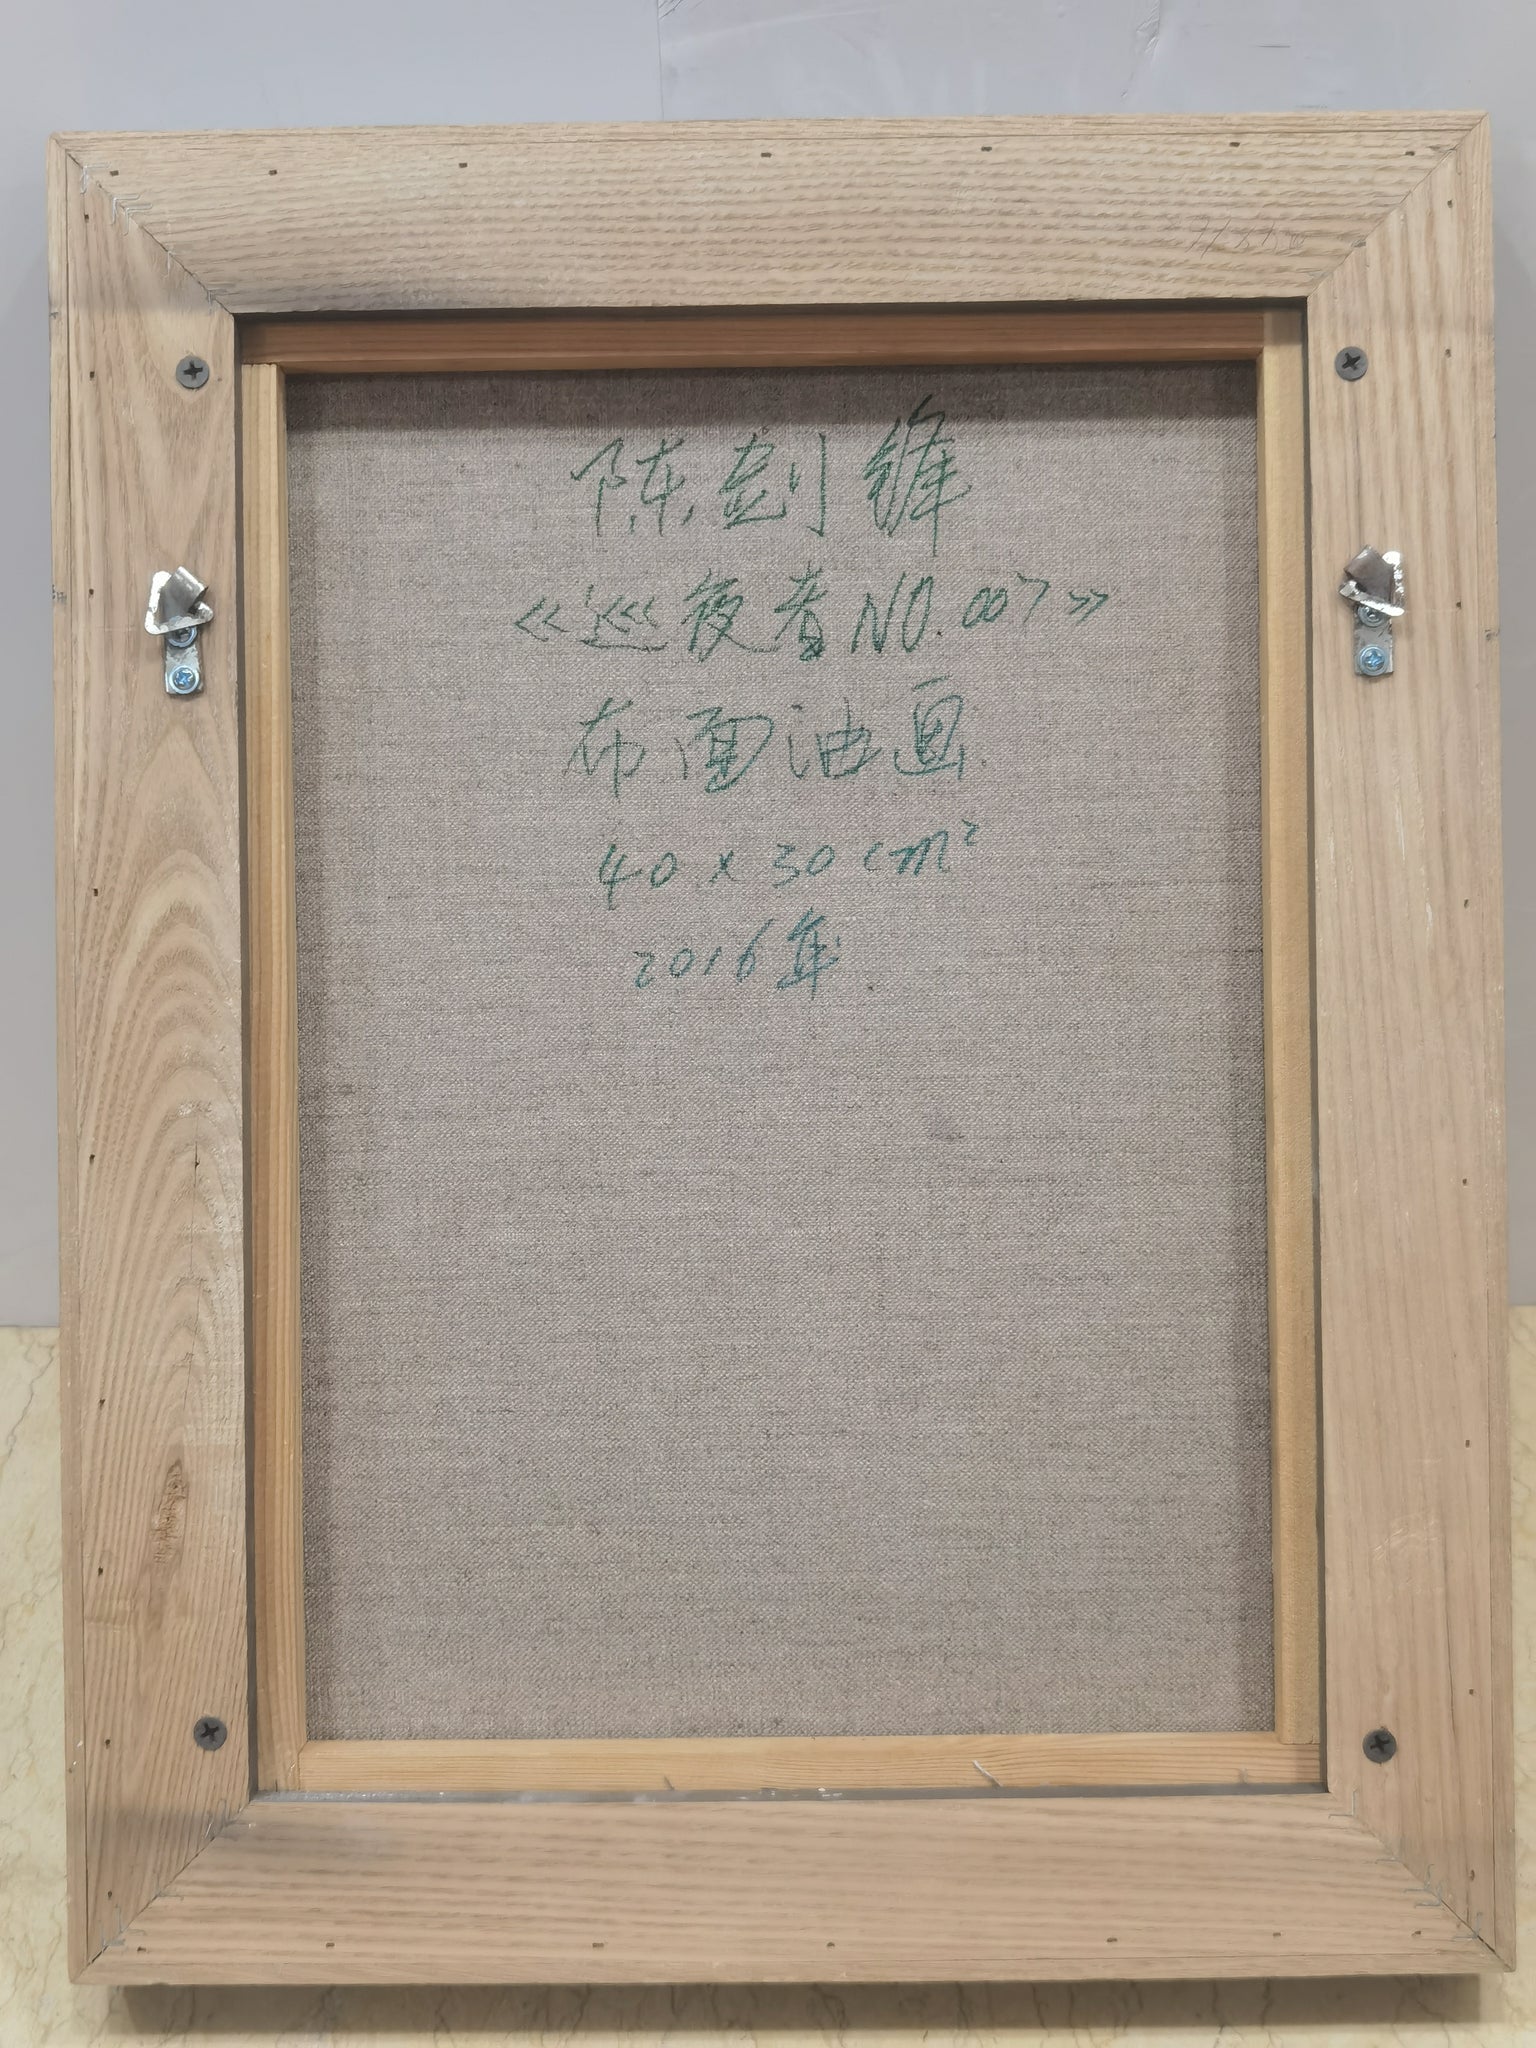 陈剑锋
《巡夜者NO.007》
布面油画
40×30cm²
2016年